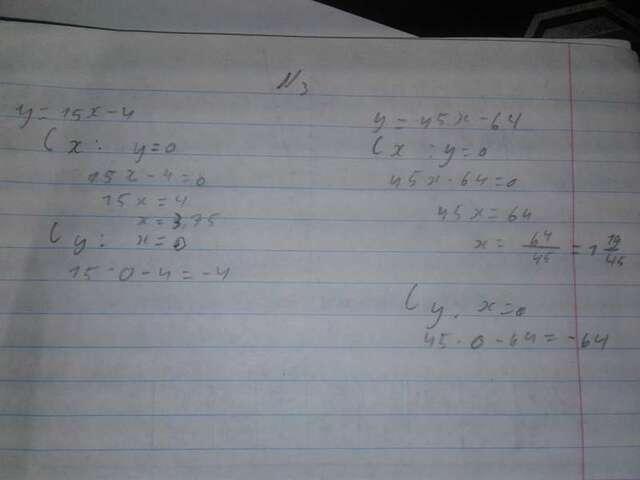 №3
y=15x-4
( x: y=0
15x-4=0
15x=4
x=3,75
( y: x=0
15·0-4=-4
y=45x-64
( x : y=0
45x-64=0
45x=64
x= 64/45 =1 19/45
( y. x=0
45·0-64=-64